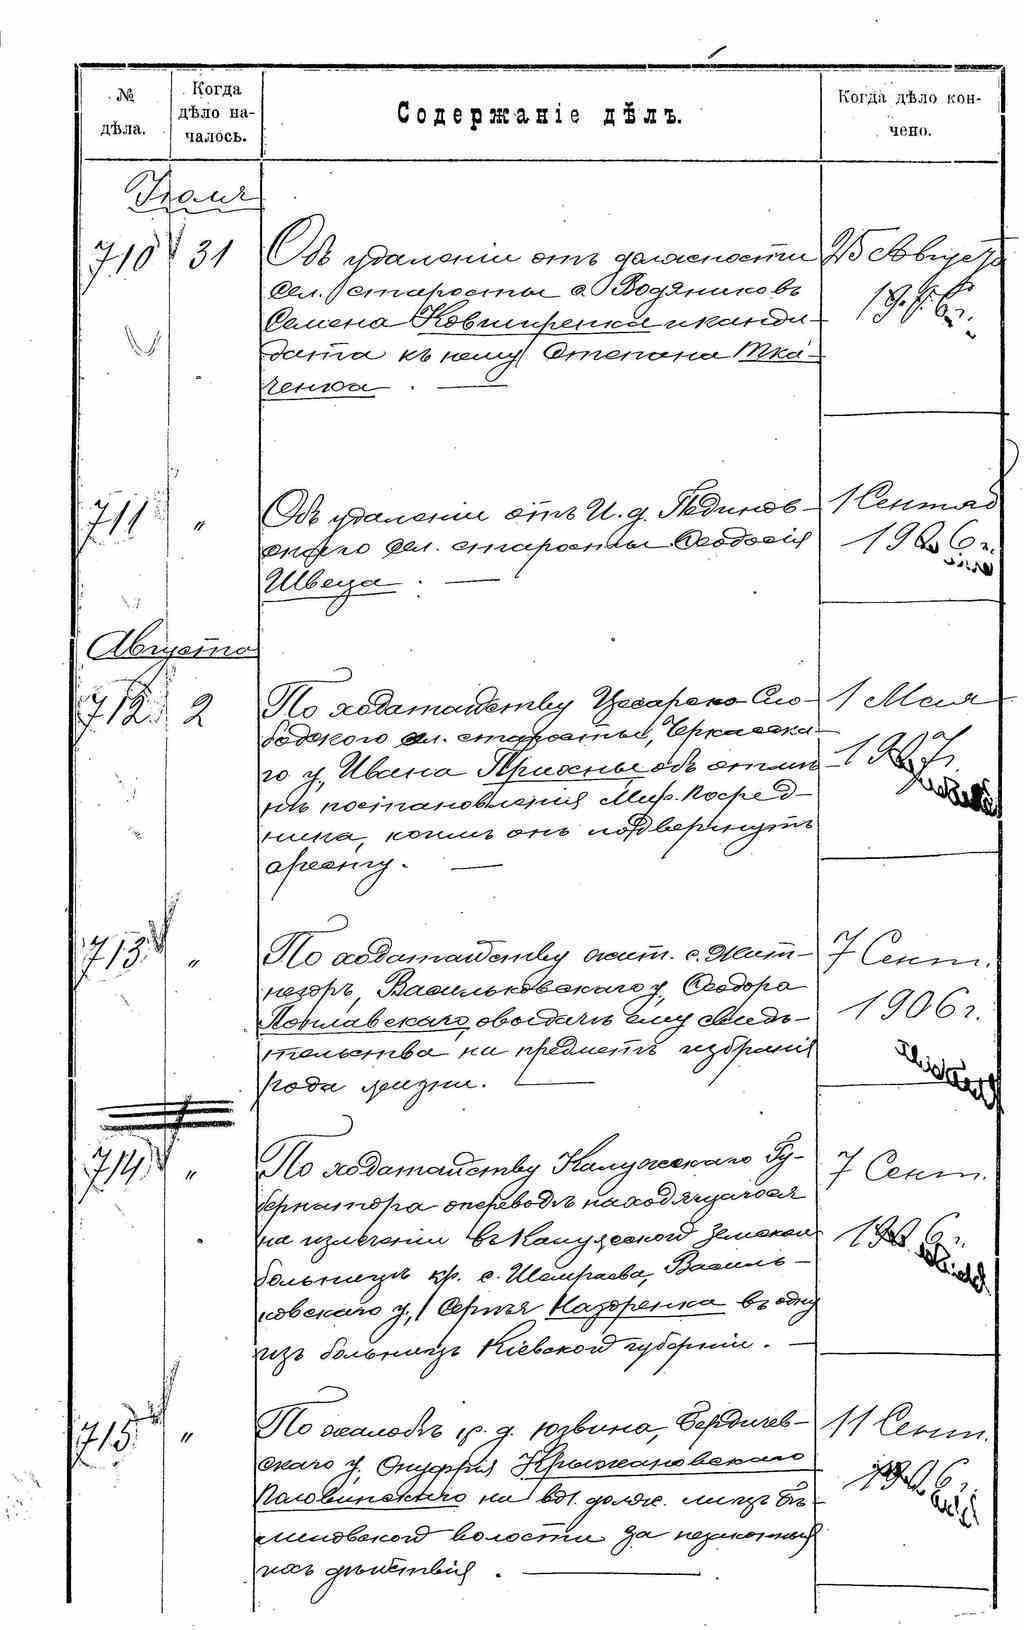 № дѣла.
Когда дѣло на-
чалось.
Содержаніе дѣлъ.
Когда дѣло кон-
чено.
Іюля
710 31 Объ удаленіи отъ должности 25 Августа
сел. старосты с. Водяниковъ 1906 г.
Семена Ковширенка и канди-
дата къ нему Степана Тка-
ченка.
711 " Объ удаленіи отъ И. д. Пединов- 1 Сентяб
скаго сел. старосты Ѳеодосія 1906 г.
Швеца.
Августа
712 2 По ходатайству Цесарско-Сло- 1 Мая
бодского сел. старосты, Черкасска- 1907 г.
го у, Ивана Прихны объ отмѣ-
нѣ постановленія Мир. Посред-
ника, коимъ онъ подвергнутъ
аресту.
713 " По ходатайству жит. с. Жит- 7 Сент.
негоръ, Васильковскаго у, Ѳеодора 1906 г.
Поплавскаго, о выдачѣ ему свидѣ-
тельства на предметъ избранія
рода жизни.
714 " По ходатайству Калужскаго Гу- 7 Сент.
бернатора о переводѣ находящагося 1906 г.
на излеченіи въ Калужской земской
больницѣ кр. с. Шамраевка, Василь-
ковскаго у, Сергѣя Назоренка въ одну
изъ больницъ Кіевской губерніи.
715 " По жалобѣ кр. д. Юзвина, Бердичев- 11 Сент.
скаго у, Онуфрія Крыжановскаго 1906 г.
Половинскаго на вол. долж. лицъ Бѣ-
ловской волости за незаконныя
ихъ дѣйствія.